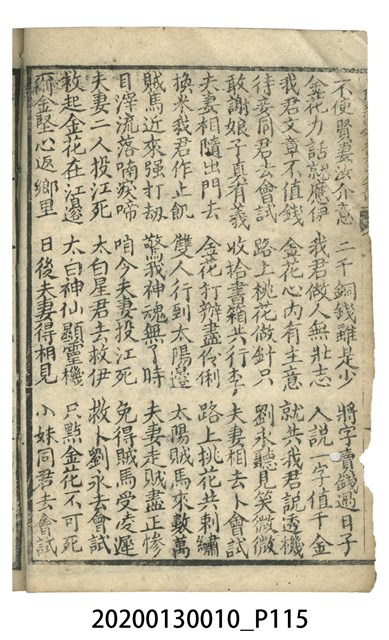 不使賢妻汝介意　二千銅錢雖是少　將字賣錢過日子
金花力話就應伊　我君做人無壯志　人說一字值千金
我君文章不值錢　金花心內有主意　就共我君說透機
待妾同君去會試　路上桃花做針只　劉永聽見笑微微
敢謝娘子真有義　收拾書箱共行李　夫妻相去卜會試
夫妻相隨出門去　金花打辦盡伶俐　路上桃花共刺繡
換米我君作止飢　雙人行到太陽邊　太陽賊馬來數萬
賊馬近來強打劫　驚我神魂無了時　夫妻走賊盡正慘
目滓流落喃淚啼　咱今夫妻投江死　免得賊馬受凌遲
夫妻二人投江死　太白星君去救伊　救卜劉永去會試
救起金花在江邊　太白神仙顯靈機　只點金花不可死
爾金堅心返鄉里　日後夫妻得相見　小妹同君去會試
20200130010_P115